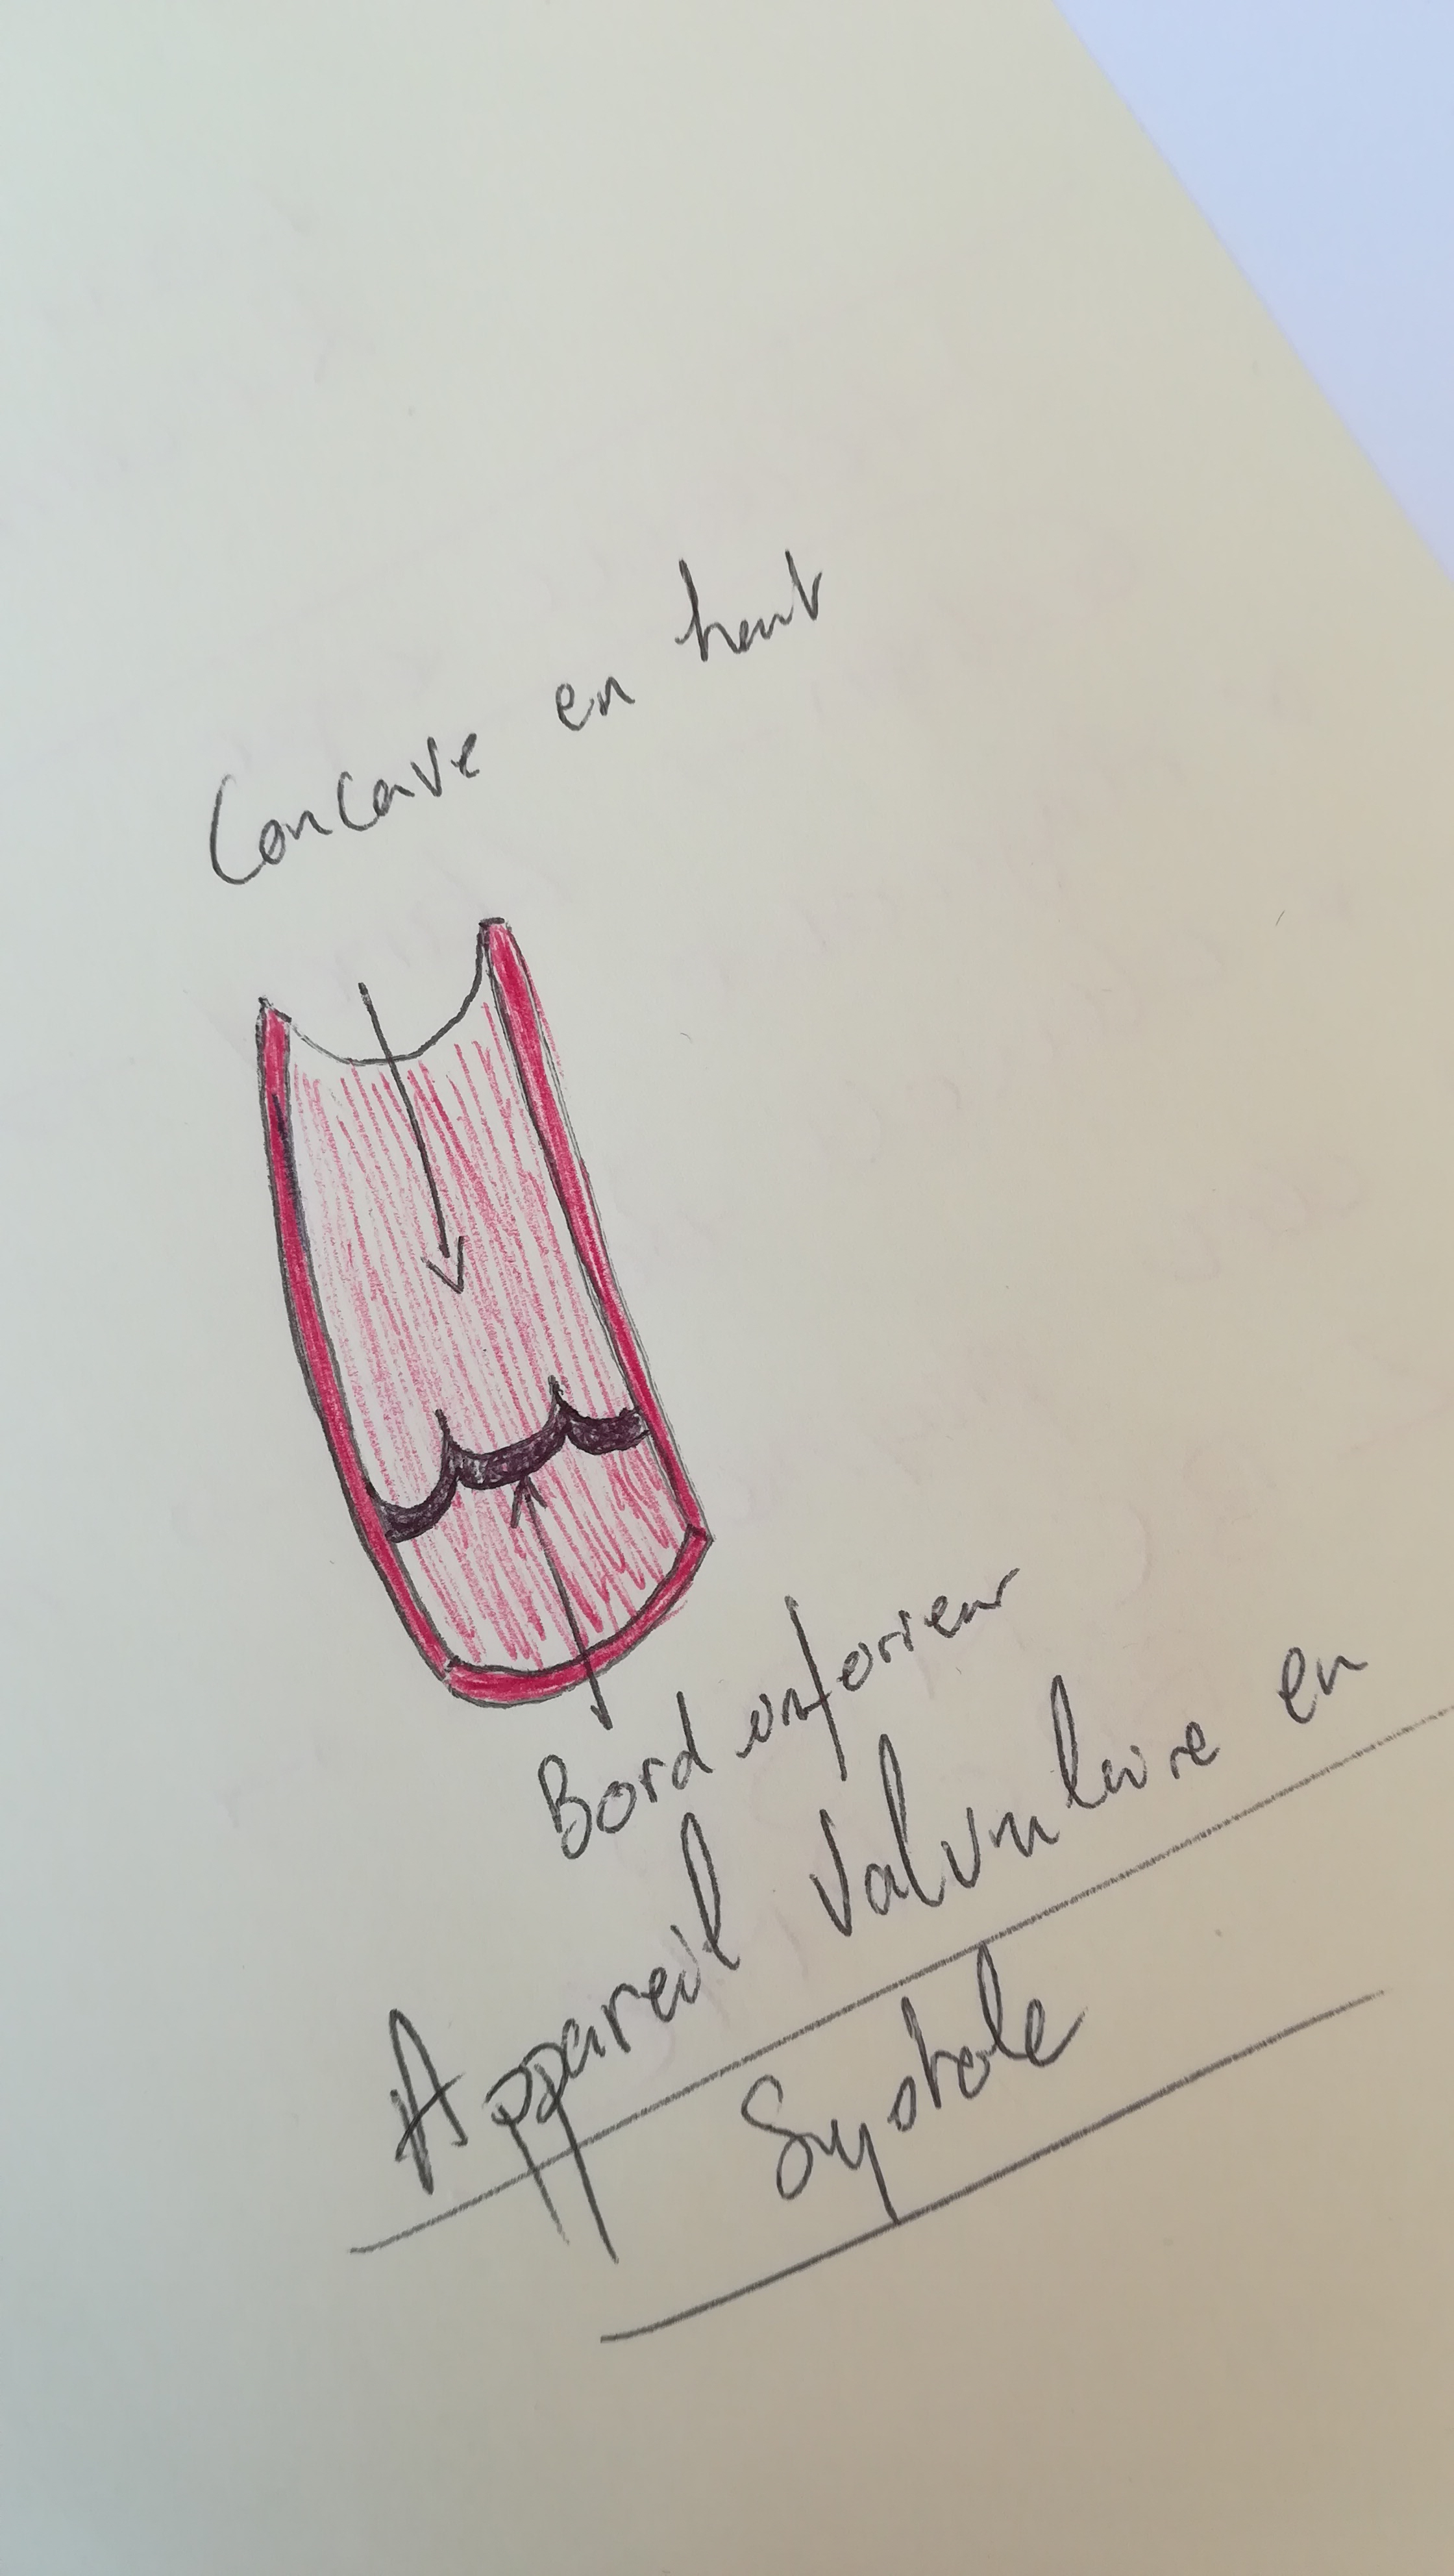 Concave en haut
Bord inferieur
Appareil Valvulaire en
Systole